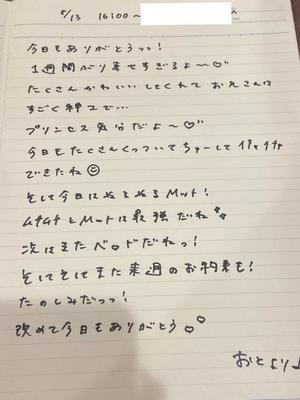 5/13 16:00〜
今日もありがとうっっ!
1週間がり来てすぎるよ〜♡
たくさんかわいいしてくれてお兄さんは
すごく神エで…
プリンセス気分だよ〜♡
今日もたくさんくっついてちゅーしてイチャイチャ
できたね☺
そして今日はぬるぬるMット!
ムチムチとMットは最強だね✨
次はまたベッドだねっ!
そしてそしてまた来週のお約束も!
たのしみだっっ!
改めて今日もありがとう♡♡
おとより♪